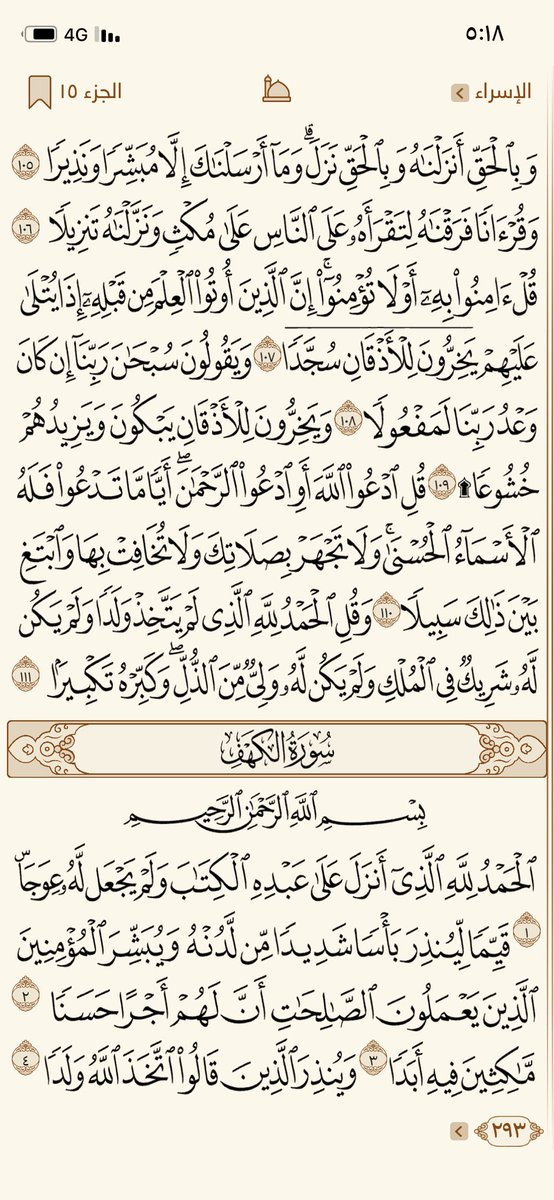 4G ٥:١٨
الإسراء الجزء ١٥
وَبِٱلۡحَقِّ أَنزَلۡنَٰهُ وَبِٱلۡحَقِّ نَزَلَۗ وَمَآ أَرۡسَلۡنَٰكَ إِلَّا مُبَشِّرٗا وَنَذِيرٗا ١٠٥
وَقُرۡءَانٗا فَرَقۡنَٰهُ لِتَقۡرَأَهُۥ عَلَى ٱلنَّاسِ عَلَىٰ مُكۡثٖ وَنَزَّلۡنَٰهُ تَنزِيلٗا ١٠٦
قُلۡ ءَامِنُواْ بِهِۦٓ أَوۡ لَا تُؤۡمِنُوٓاْۚ إِنَّ ٱلَّذِينَ أُوتُواْ ٱلۡعِلۡمَ مِن قَبۡلِهِۦٓ إِذَا يُتۡلَىٰ
عَلَيۡهِمۡ يَخِرُّونَۤ لِلۡأَذۡقَانِۤ سُجَّدٗاۤ ١٠٧ وَيَقُولُونَ سُبۡحَٰنَ رَبِّنَآ إِن كَانَ
وَعۡدُ رَبِّنَا لَمَفۡعُولٗا ١٠٨ وَيَخِرُّونَ لِلۡأَذۡقَانِ يَبۡكُونَ وَيَزِيدُهُمۡ
خُشُوعٗا۩ ١٠٩ قُلِ ٱدۡعُواْ ٱللَّهَ أَوِ ٱدۡعُواْ ٱلرَّحۡمَٰنَۖ أَيّٗا مَّا تَدۡعُواْ فَلَهُ
ٱلۡأَسۡمَآءُ ٱلۡحُسۡنَىٰۚ وَلَا تَجۡهَرۡ بِصَلَاتِكَ وَلَا تُخَافِتۡ بِهَا وَٱبۡتَغِ
بَيۡنَ ذَٰلِكَ سَبِيلٗا ١١٠ وَقُلِ ٱلۡحَمۡدُ لِلَّهِ ٱلَّذِي لَمۡ يَتَّخِذۡ وَلَدٗا وَلَمۡ يَكُن
لَّهُۥ شَرِيكٞ فِي ٱلۡمُلۡكِ وَلَمۡ يَكُن لَّهُۥ وَلِيّٞ مِّنَ ٱلذُّلِّۖ وَكَبِّرۡهُ تَكۡبِيرَۢا ١١١
سُورَةُ الكَهۡفِ
بِسۡمِ ٱللَّهِ ٱلرَّحۡمَٰنِ ٱلرَّحِيمِ
ٱلۡحَمۡدُ لِلَّهِ ٱلَّذِيٓ أَنزَلَ عَلَىٰ عَبۡدِهِ ٱلۡكِتَٰبَ وَلَمۡ يَجۡعَل لَّهُۥ عِوَجَاۜ
١ قَيِّمٗا لِّيُنذِرَ بَأۡسٗا شَدِيدٗا مِّن لَّدُنۡهُ وَيُبَشِّرَ ٱلۡمُؤۡمِنِينَ
ٱلَّذِينَ يَعۡمَلُونَ ٱلصَّٰلِحَٰتِ أَنَّ لَهُمۡ أَجۡرًا حَسَنٗا ٢
مَّٰكِثِينَ فِيهِ أَبَدٗا ٣ وَيُنذِرَ ٱلَّذِينَ قَالُواْ ٱتَّخَذَ ٱللَّهُ وَلَدٗا ٤
٢٩٣